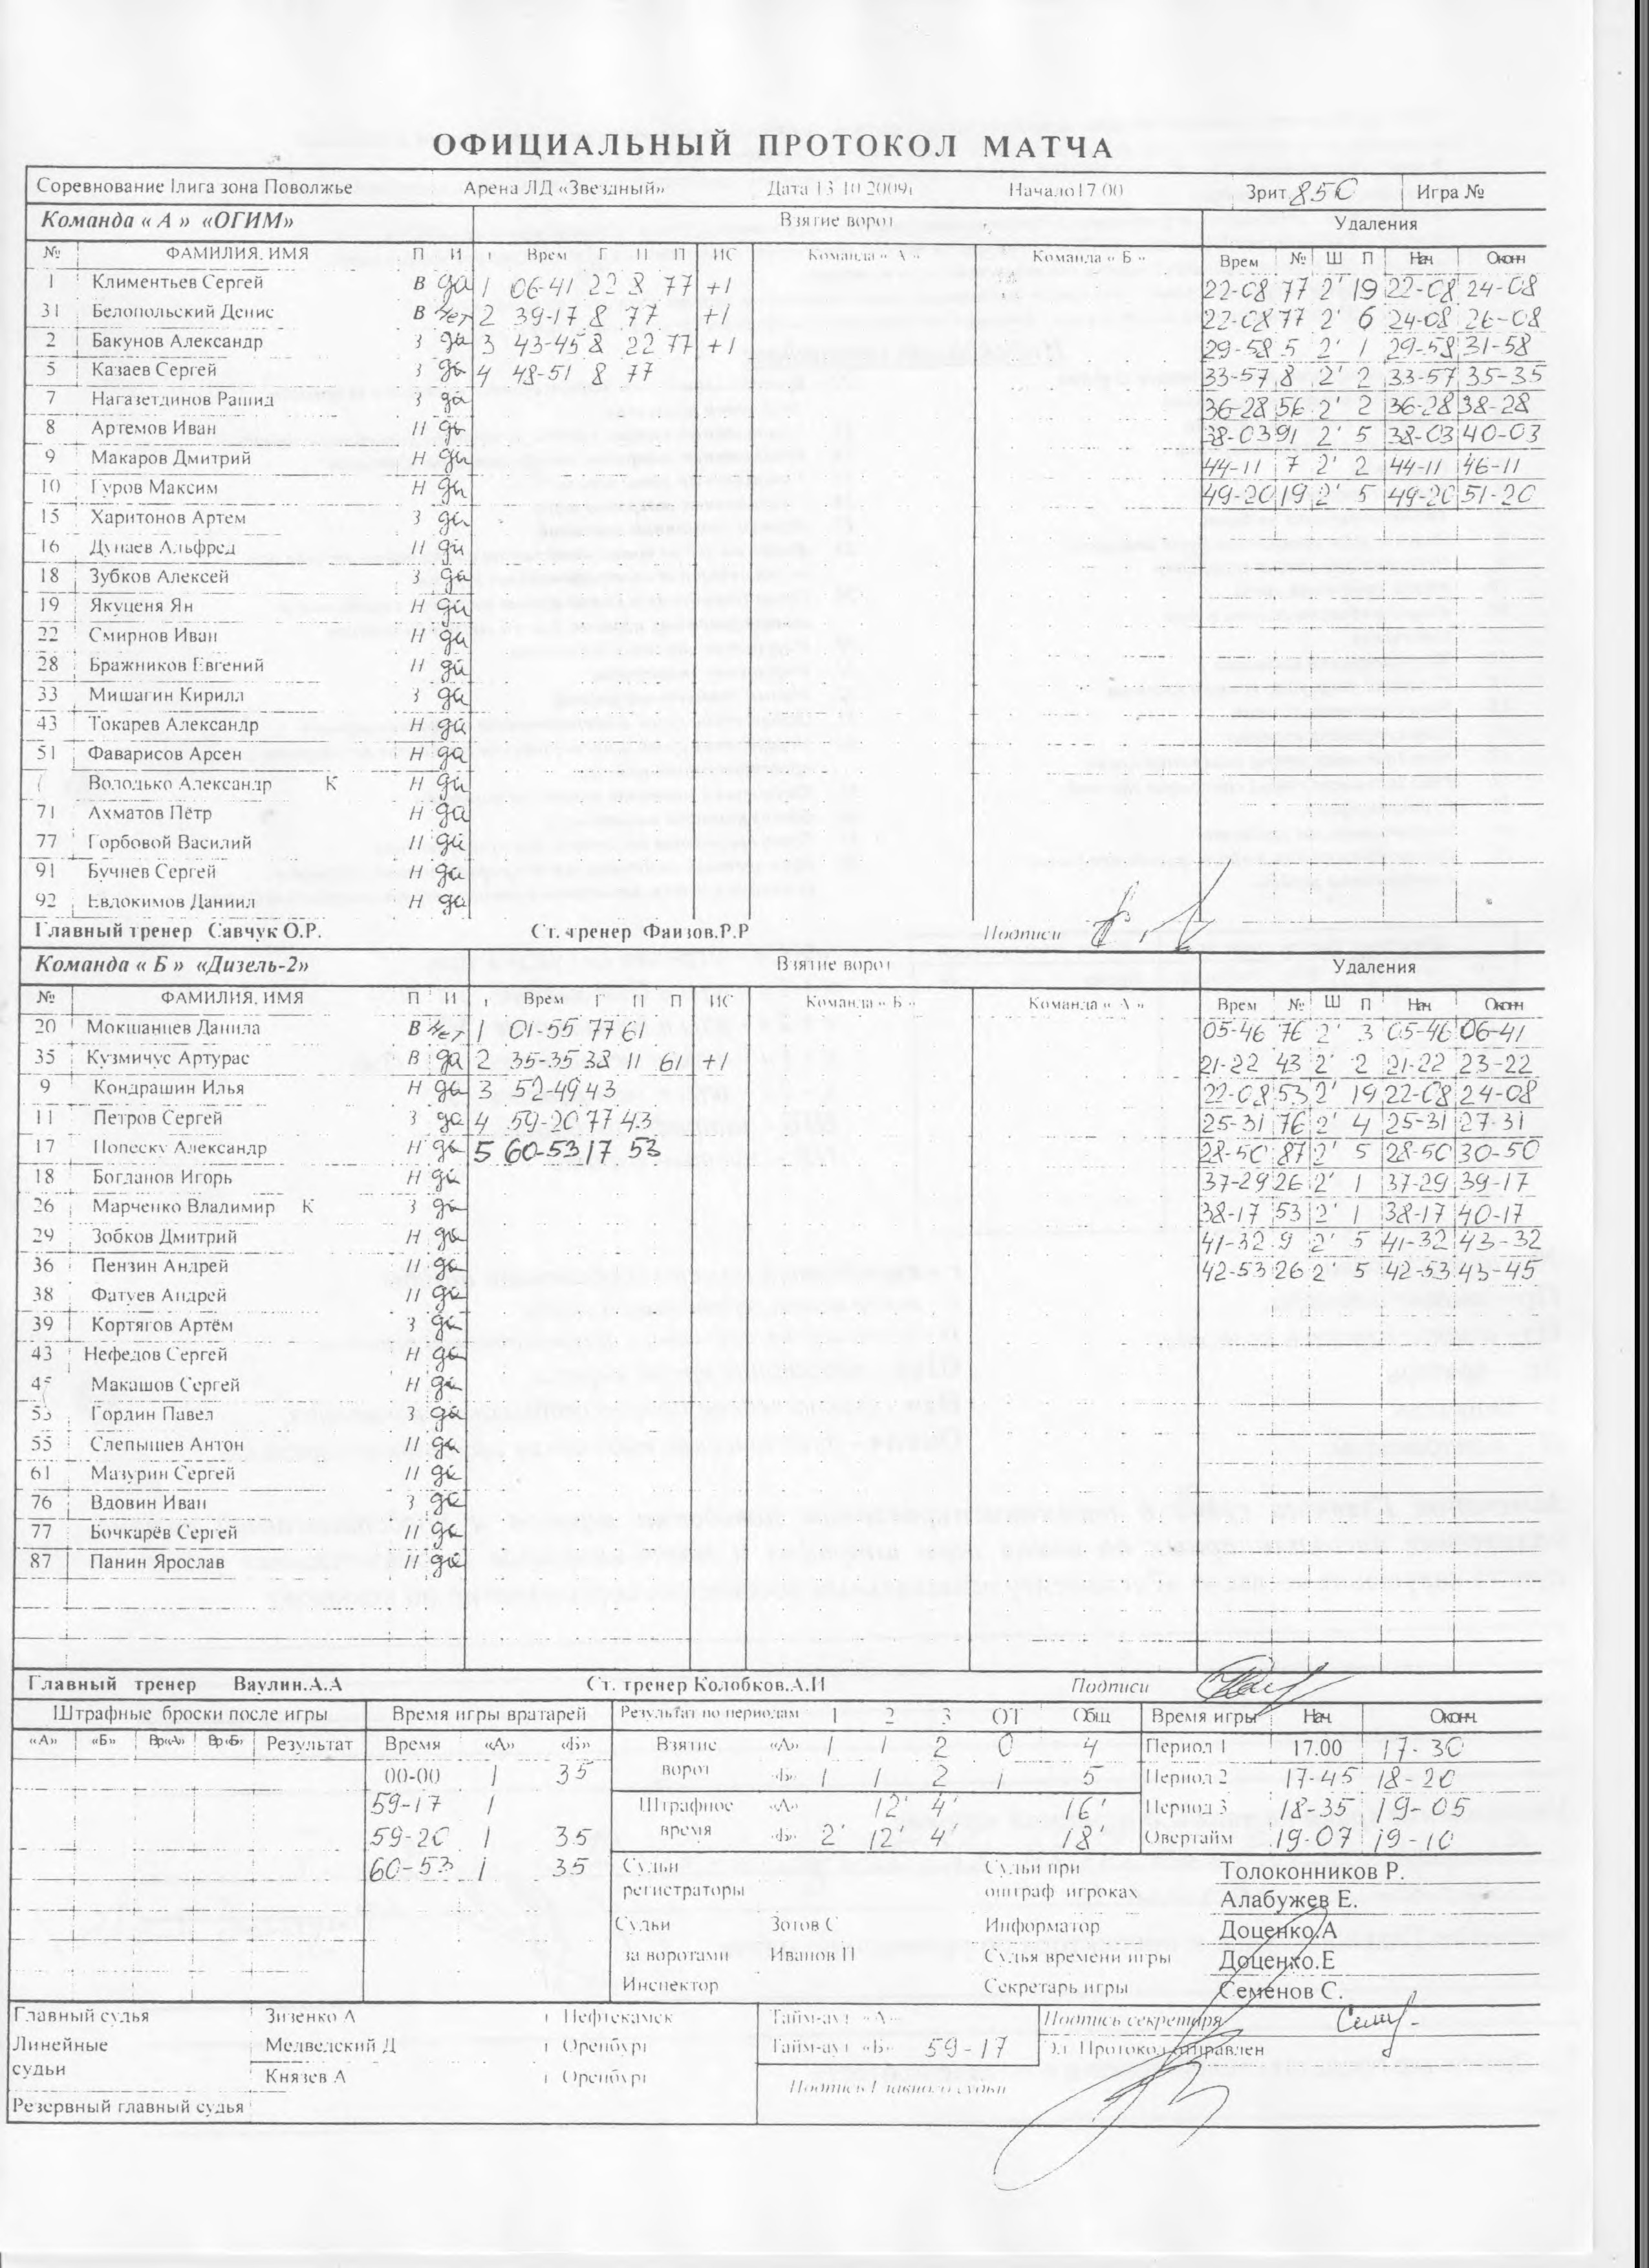 ОФИЦИАЛЬНЫЙ ПРОТОКОЛ МАТЧА
Соревнование Iлига зона Поволжье Арена ЛД «Звездный» Дата 13 10 2009г Начало17 00 Зрит 850 Игра №
Команда « А » «ОГИМ» Взятие ворот Удаления
№ ФАМИЛИЯ, ИМЯ П И г Врем Г П П ИС Команда « А » Команда « Б » Врем № Ш П Нач Оконч
1 Климентьев Сергей В да 1 06-41 22 8 77 +1 22-08 77 2' 19 22-08 24-08
31 Белопольский Денис В нет 2 39-17 8 77 +1 22-08 77 2' 6 24-08 26-08
2 Бакунов Александр З да 3 43-45 8 22 77 +1 29-58 5 2' 1 29-58 31-58
5 Казаев Сергей З да 4 48-51 8 77 33-57 8 2' 2 33-57 35-35
7 Нагазетдинов Рашид З да 36-28 56 2' 2 36-28 38-28
8 Артемов Иван Н да 38-03 91 2' 5 38-03 40-03
9 Макаров Дмитрий Н да 44-11 7 2' 2 44-11 46-11
10 Гуров Максим Н да 49-20 19 2' 5 49-20 51-20
15 Харитонов Артем З да
16 Дунаев Альфред Н да
18 Зубков Алексей З да
19 Якуценя Ян Н да
22 Смирнов Иван Н да
28 Бражников Евгений Н да
33 Мишагин Кирилл З да
43 Токарев Александр Н да
51 Фаварисов Арсен Н да
Володько Александр К Н да
71 Ахматов Пётр Н да
77 Горбовой Василий Н да
91 Бучнев Сергей Н да
92 Евдокимов Даниил Н да
Главный тренер Савчук О.Р. Ст. тренер Фаизов.Р.Р Подписи
Команда « Б » «Дизель-2» Взятие ворот Удаления
№ ФАМИЛИЯ, ИМЯ П И г Врем Г П П ИС Команда « Б » Команда « А » Врем № Ш П Нач Оконч
20 Мокшанцев Данила В нет 1 01-55 77 61 05-46 76 2' 3 05-46 06-41
35 Кузмичус Артурас В да 2 35-35 38 11 61 +1 21-22 43 2' 2 21-22 23-22
9 Кондрашин Илья Н да 3 52-49 43 22-08 53 2' 19 22-08 24-08
11 Петров Сергей З да 4 59-20 77 43 25-31 76 2' 4 25-31 27-31
17 Попеску Александр Н да 5 60-53 17 53 28-50 87 2' 5 28-50 30-50
18 Богданов Игорь Н да 37-29 26 2' 1 37-29 39-17
26 Марченко Владимир К З да 38-17 53 2' 1 38-17 40-17
29 Зобков Дмитрий Н да 41-32 9 2' 5 41-32 43-32
36 Пензин Андрей Н да 42-53 26 2' 5 42-53 43-45
38 Фатуев Андрей Н да
39 Кортягов Артём З да
43 Нефедов Сергей Н да
45 Макашов Сергей Н да
53 Горлин Павел З да
55 Слепышев Антон Н да
61 Мазурин Сергей Н да
76 Вдовин Иван З да
77 Бочкарёв Сергей Н да
87 Панин Ярослав Н да
Главный тренер Ваулин.А.А Ст. тренер Колобков.А.И Подписи
Штрафные броски после игры Время игры вратарей Результат по периодам 1 2 3 ОТ Общ Время игры Нач. Оконч.
«А» «Б» Вр«А» Вр«Б» Результат Время «А» «Б» Взятие «А» 1 1 2 0 4 Период 1 17.00 17-30
00-00 1 35 ворот «Б» 1 1 2 1 5 Период 2 17-45 18-20
59-17 1 Штрафное «А» 12' 4' 16' Период 3 18-35 19-05
59-20 1 35 время «Б» 2' 12' 4' 18' Овертайм 19-07 19-10
60-53 1 35 Судьи Судьи при Толоконников Р.
регистраторы оштраф игроках Алабужев Е.
Судьи Зотов С Информатор Доценко.А
за воротами Иванов П Судья времени игры Доценко.Е
Инспектор Секретарь игры Семенов С.
Главный судья Зизенко А г Нефтекамск Тайм-аут «А» Подпись секретаря
Линейные Медведский Д г Оренбург Тайм-аут «Б» 59-17 Эл Протокол отправлен
судьи Князев А г Оренбург Подпись Главного судьи
Резервный главный судья